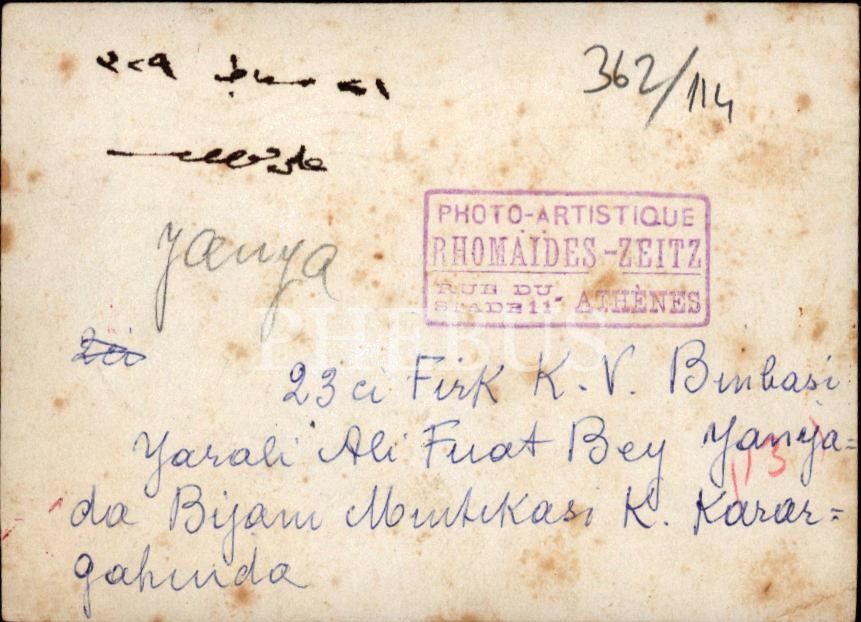 362/114
Yanya
PHOTO-ARTISTIQUE
RHOMAÏDES-ZEITZ
RUE DU STADE 11 ATHÈNES
PHEBUS
2ci
23 ci Firk K. V. Binbasi
Yarali Ali Fuat Bey Yanya=
da Bijani Mıntıkası K. Karar=
gahında
113